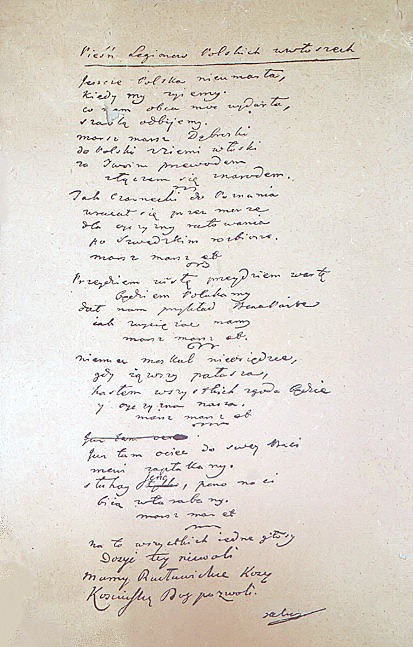 Pieśń Legionów Polskich we włoszech
Jeszcze Polska nieumarła,
kiedy my żyjemy.
co nam obca moc wydarła,
szablą odbijemy.
marsz marsz Dąbrski
do Polski z ziemi włoski
za Twoim przewodem
złączem się znarodem.
Jak Czarnecki do Poznania
wracał się przez morze
dla ojczyzny ratowania
po Szwedzkim rozbiorze.
marsz marsz et
Przejdziem wisłę przejdziem wartę
będziem Polakamy
dał nam przykład Bonaparte
jak zwyciężać mamy
marsz marsz et.
niemiec moskal nieosiędzie,
gdy jąwszy pałasza,
hasłem wszystkich zgoda będzie
y ojczyzna nasza.
marsz marsz et
Już tam
Już tam ociec do swej Basi
mówi zapłakany.
słuchaj jeno, pono nasi
biją w tarabany.
marsz mar et
na to wszystkich jedne głosy
Dosyć tey niewoli
mamy Racławickie Kosy
Kościuszkę Bog pozwoli.